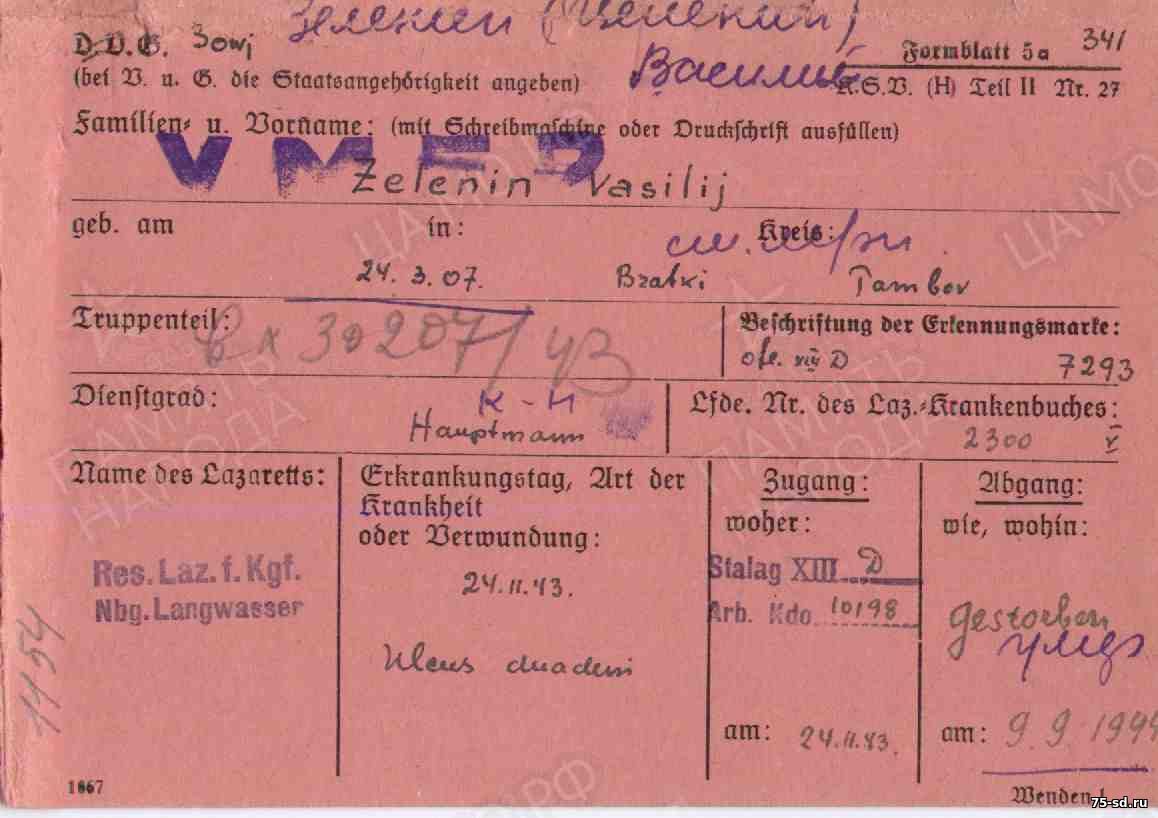 Зеленин (Целекий)
D.V.G. Sowj
Formblatt 5a 341
(bei V. u. G. die Staatsangehörigkeit angeben) Василий K.S.V. (H) Teil II Nr. 27
Familien- u. Vorname: (mit Schreibmaschine oder Druckschrift ausfüllen)
УМЕР
Zelenin Vasilij
geb. am in: Kreis:
24.3.07. Bratki Tambov
Truppenteil: Beschriftung der Erkennungsmarke:
Вх 30207/43 ofl. XIII D 7293
Dienstgrad: К-Н Lfde. Nr. des Laz.-Krankenbuches:
Hauptmann 2300 V
Name des Lazaretts: Erkrankungstag, Art der Krankheit oder Verwundung: Zugang: Abgang:
woher: wie, wohin:
Res. Laz. f. Kgf. 24.11.43. Stalag XIII D
Nbg. Langwasser Arb. Kdo. 10198 gestorben
умер
Ulcus duodeni
1154
am: 24.11.43. am: 9 9 1944
1667
Wenden!
75-sd.ru
ПАМЯТЬ НАРОДА
ЦАМО РФ